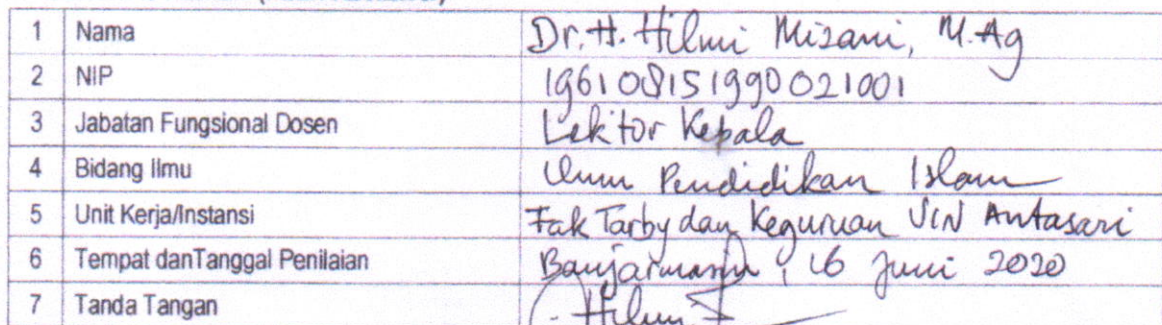 1 Nama Dr. H. Hilmi Mizani, M.Ag
2 NIP 196108151990021001
3 Jabatan Fungsional Dosen Lektor Kepala
4 Bidang Ilmu Ilmu Pendidikan Islam
5 Unit Kerja/Instansi Fak Tarby dan Keguruan UIN Antasari
6 Tempat danTanggal Penilaian Banjarmasin, 16 Juni 2020
7 Tanda Tangan Hilmi